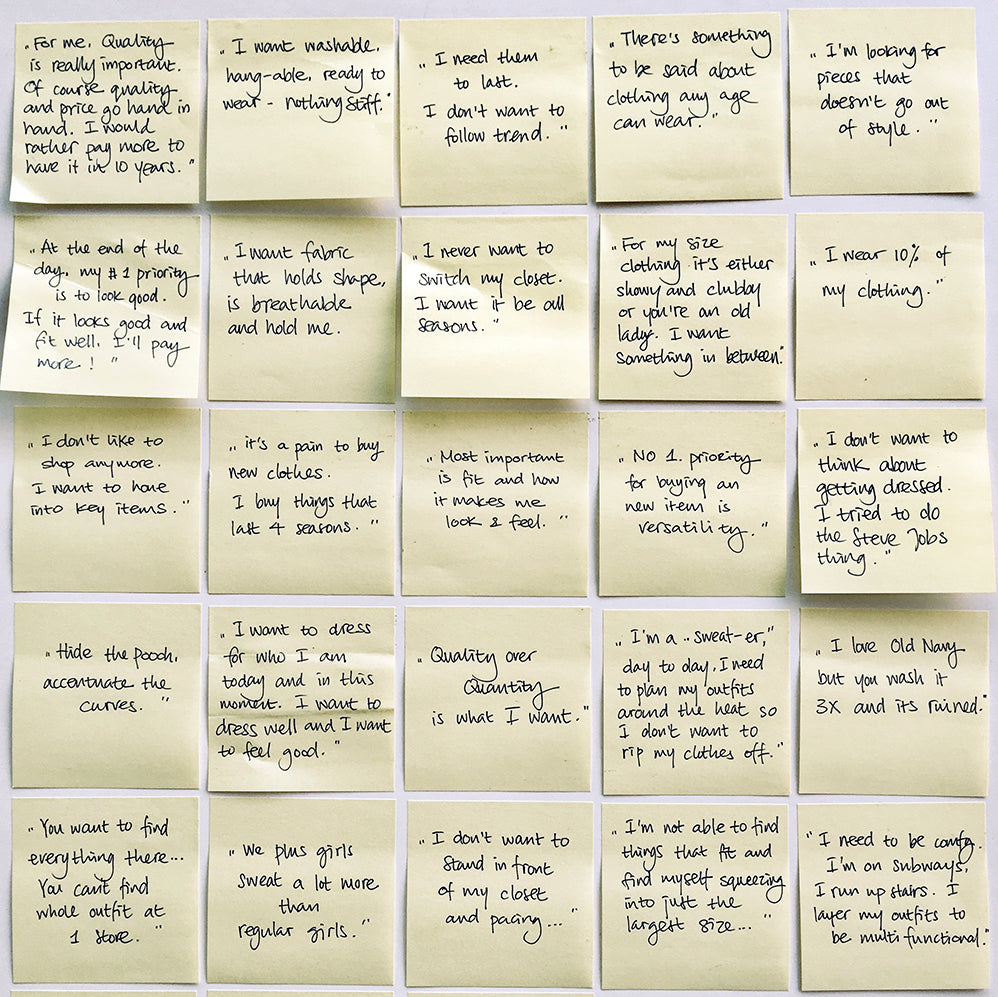 „For me, Quality
is really important.
Of course quality
and price go hand in
hand. I would
rather pay more to
have it in 10 years."
„I want washable,
hang-able, ready to
wear - nothing stiff."
„I need them
to last.
I don't want to
follow trend."
„There's something
to be said about
clothing any age
can wear."
„I'm looking for
pieces that
doesn't go out
of style."
„At the end of the
day, my #1 priority
is to look good.
If it looks good and
fit well, I'll pay
more! "
„I want fabric
that holds shape,
is breathable
and hold me.
„I never want to
switch my closet.
I want it be all
seasons."
„For my size
clothing it's either
showy and clubby
or you're an old
lady. I want
something in between."
„I wear 10% of
my clothing."
„I don't like to
shop anymore.
I want to hone
into key items."
„it's a pain to buy
new clothes.
I buy things that
last 4 seasons."
„Most important
is fit and how
it makes me
look & feel."
„NO 1. priority
for buying an
new item is
versatility."
„I don't want to
think about
getting dressed.
I tried to do
the Steve Jobs
thing."
„Hide the pooch,
accentuate the
curves."
„I want to dress
for who I am
today and in this
moment. I want to
dress well and I want
to feel good."
„Quality over
Quantity
is what I want."
„I'm a „sweat-er,"
day to day, I need
to plan my outfits
around the heat so
I don't want to
rip my clothes off."
„I love Old Navy
but you wash it
3X and its ruined."
„You want to find
everything there...
You can't find
whole outfit at
1 store."
„We plus girls
sweat a lot more
than
regular girls."
„I don't want to
stand in front
of my closet
and pacing..."
„I'm not able to find
things that fit and
find myself squeezing
into just the
largest size..."
"I need to be comfy.
I'm on subways,
I run up stairs. I
layer my outfits to
be multi functional."